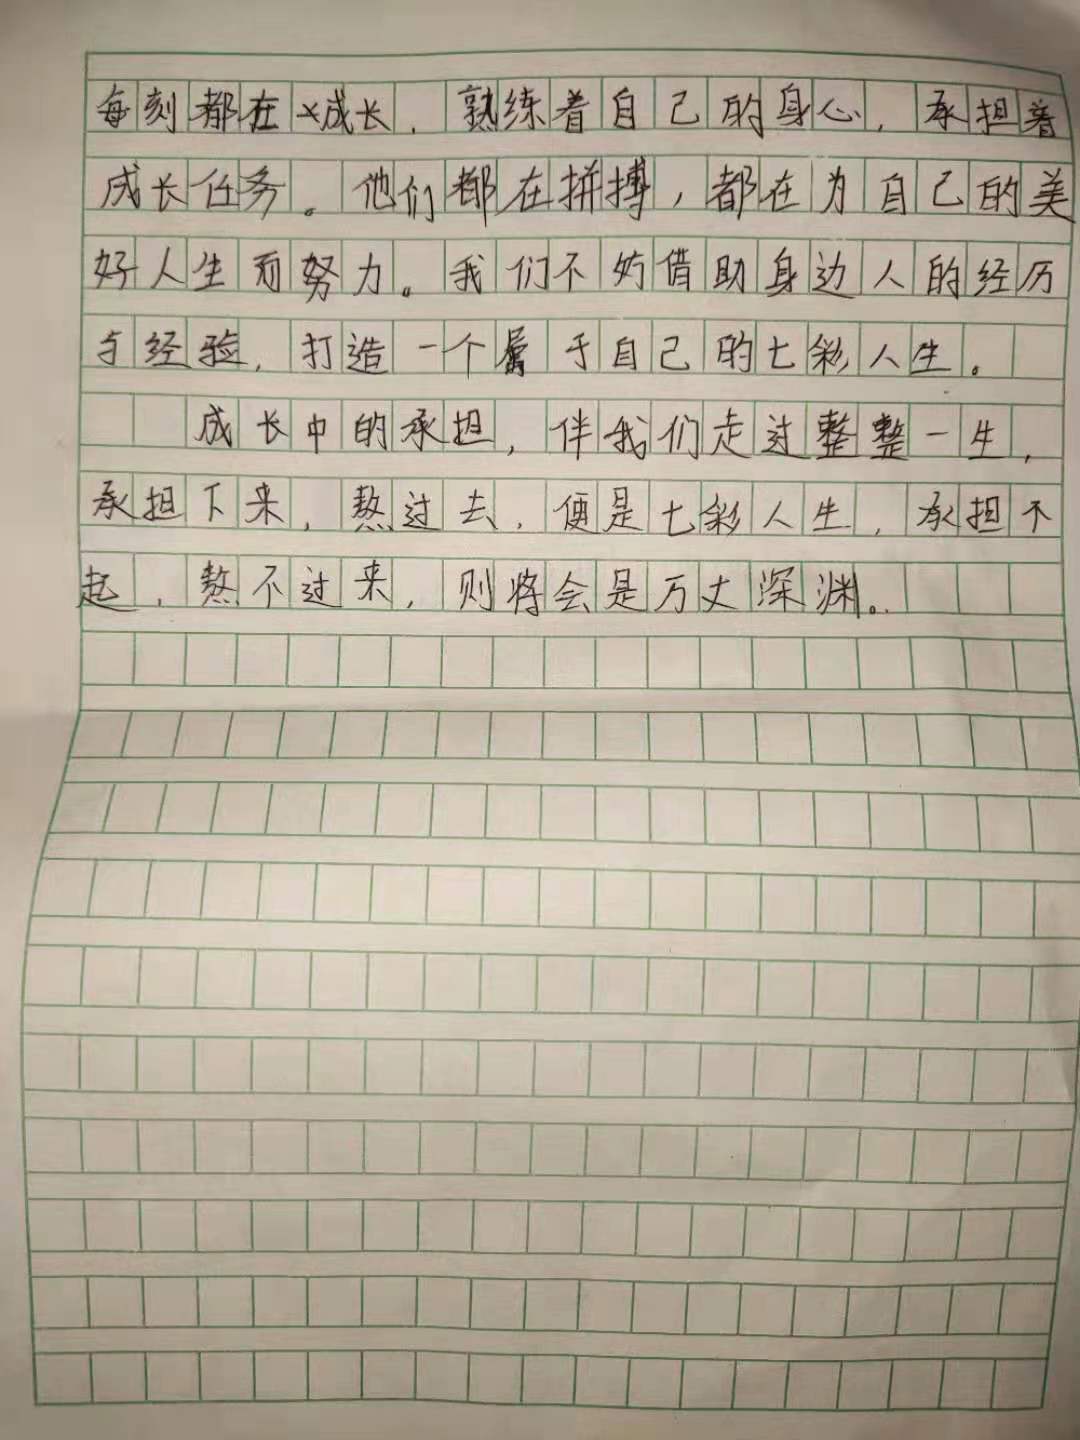 每刻都在成长,熟练着自己的身心,承担着
成长任务。他们都在拼搏,都在为自己的美
好人生而努力。我们不妨借助身边人的经历
与经验,打造一个属于自己的七彩人生。
成长中的承担,伴我们走过整整一生,
承担下来,熬过去,便是七彩人生,承担不
起,熬不过来,则将会是万丈深渊。